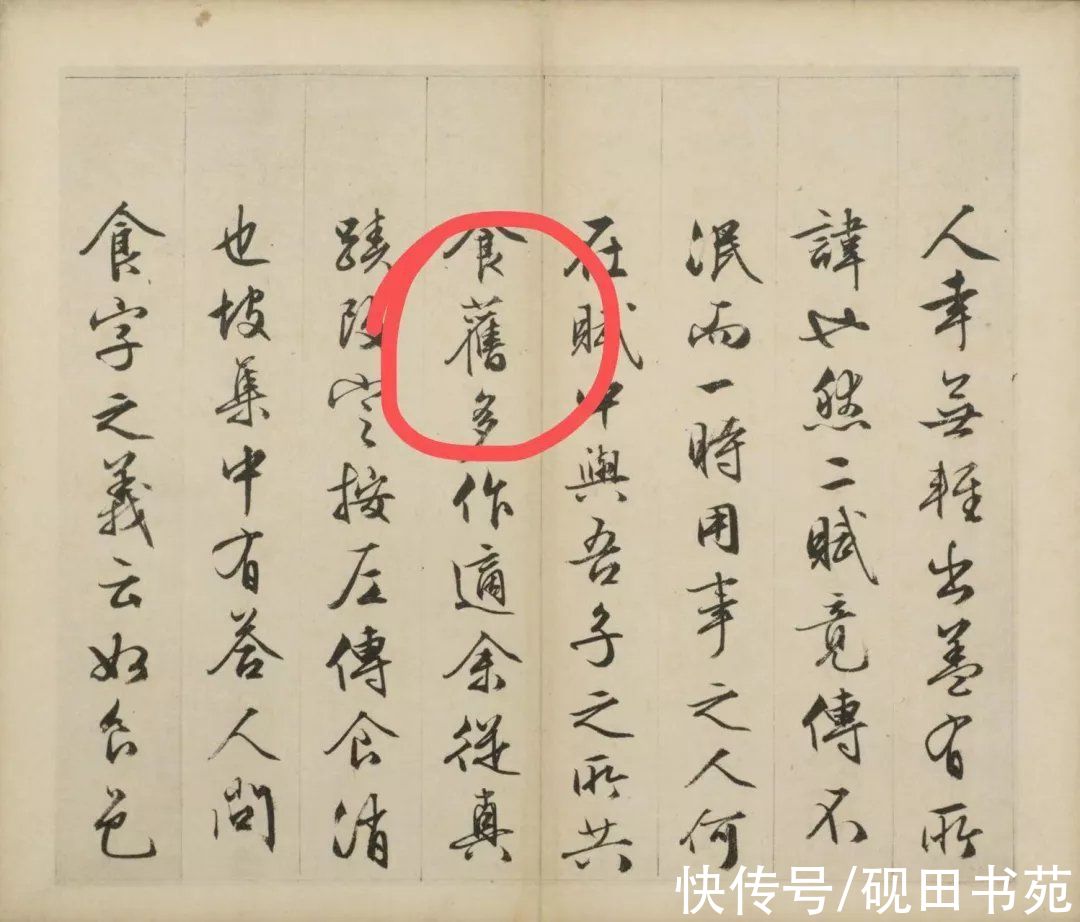 人幸無輕出蓋有所
諱也然二賦竟傳不
泯而一時用事之人何
在賦中與吾子之所共
食舊多作適余從真
蹟改定按左傳食消
也坡集中有荅人問
食字之義云如食邑
快传号/砚田书苑